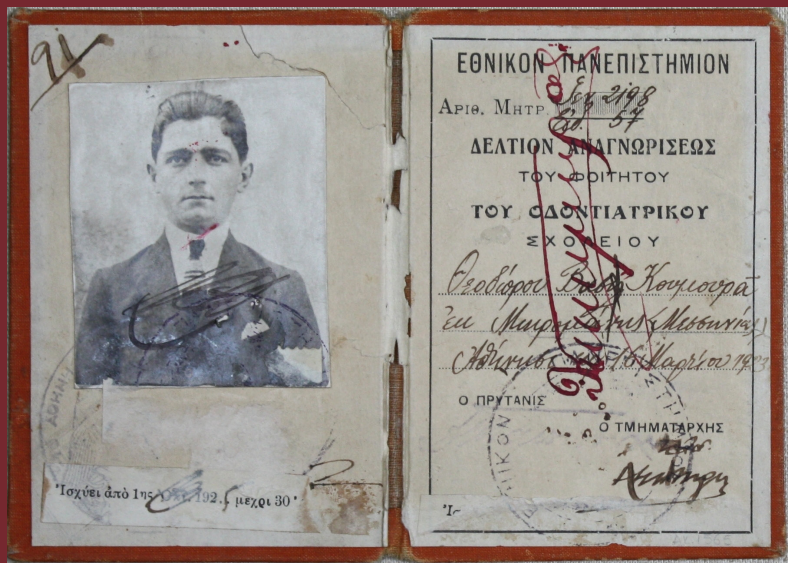 91
Ἰσχύει ἀπὸ 1ης Ὀκτ. 192 5 μεχρι 30
ΕΘΝΙΚΟΝ ΠΑΝΕΠΙΣΤΗΜΙΟΝ
ΑΡΙΘ. ΜΗΤΡ. 2198
57
ΔΕΛΤΙΟΝ ΑΝΑΓΝΩΡΙΣΕΩΣ
ΤΟΥ ΦΟΙΤΗΤΟΥ
ΤΟΥ ΟΔΟΝΤΙΑΤΡΙΚΟΥ
ΣΧΟΛΕΙΟΥ
Θεοδώρου Βασ. Κουμουρᾶ
ἐκ Μικρομάνης (Μεσσηνίας)
Ἀθήνησι 15 Μαρτίου 1923
Ο ΠΡΥΤΑΝΙΣ
Ο ΤΜΗΜΑΤΑΡΧΗΣ
Ἰ